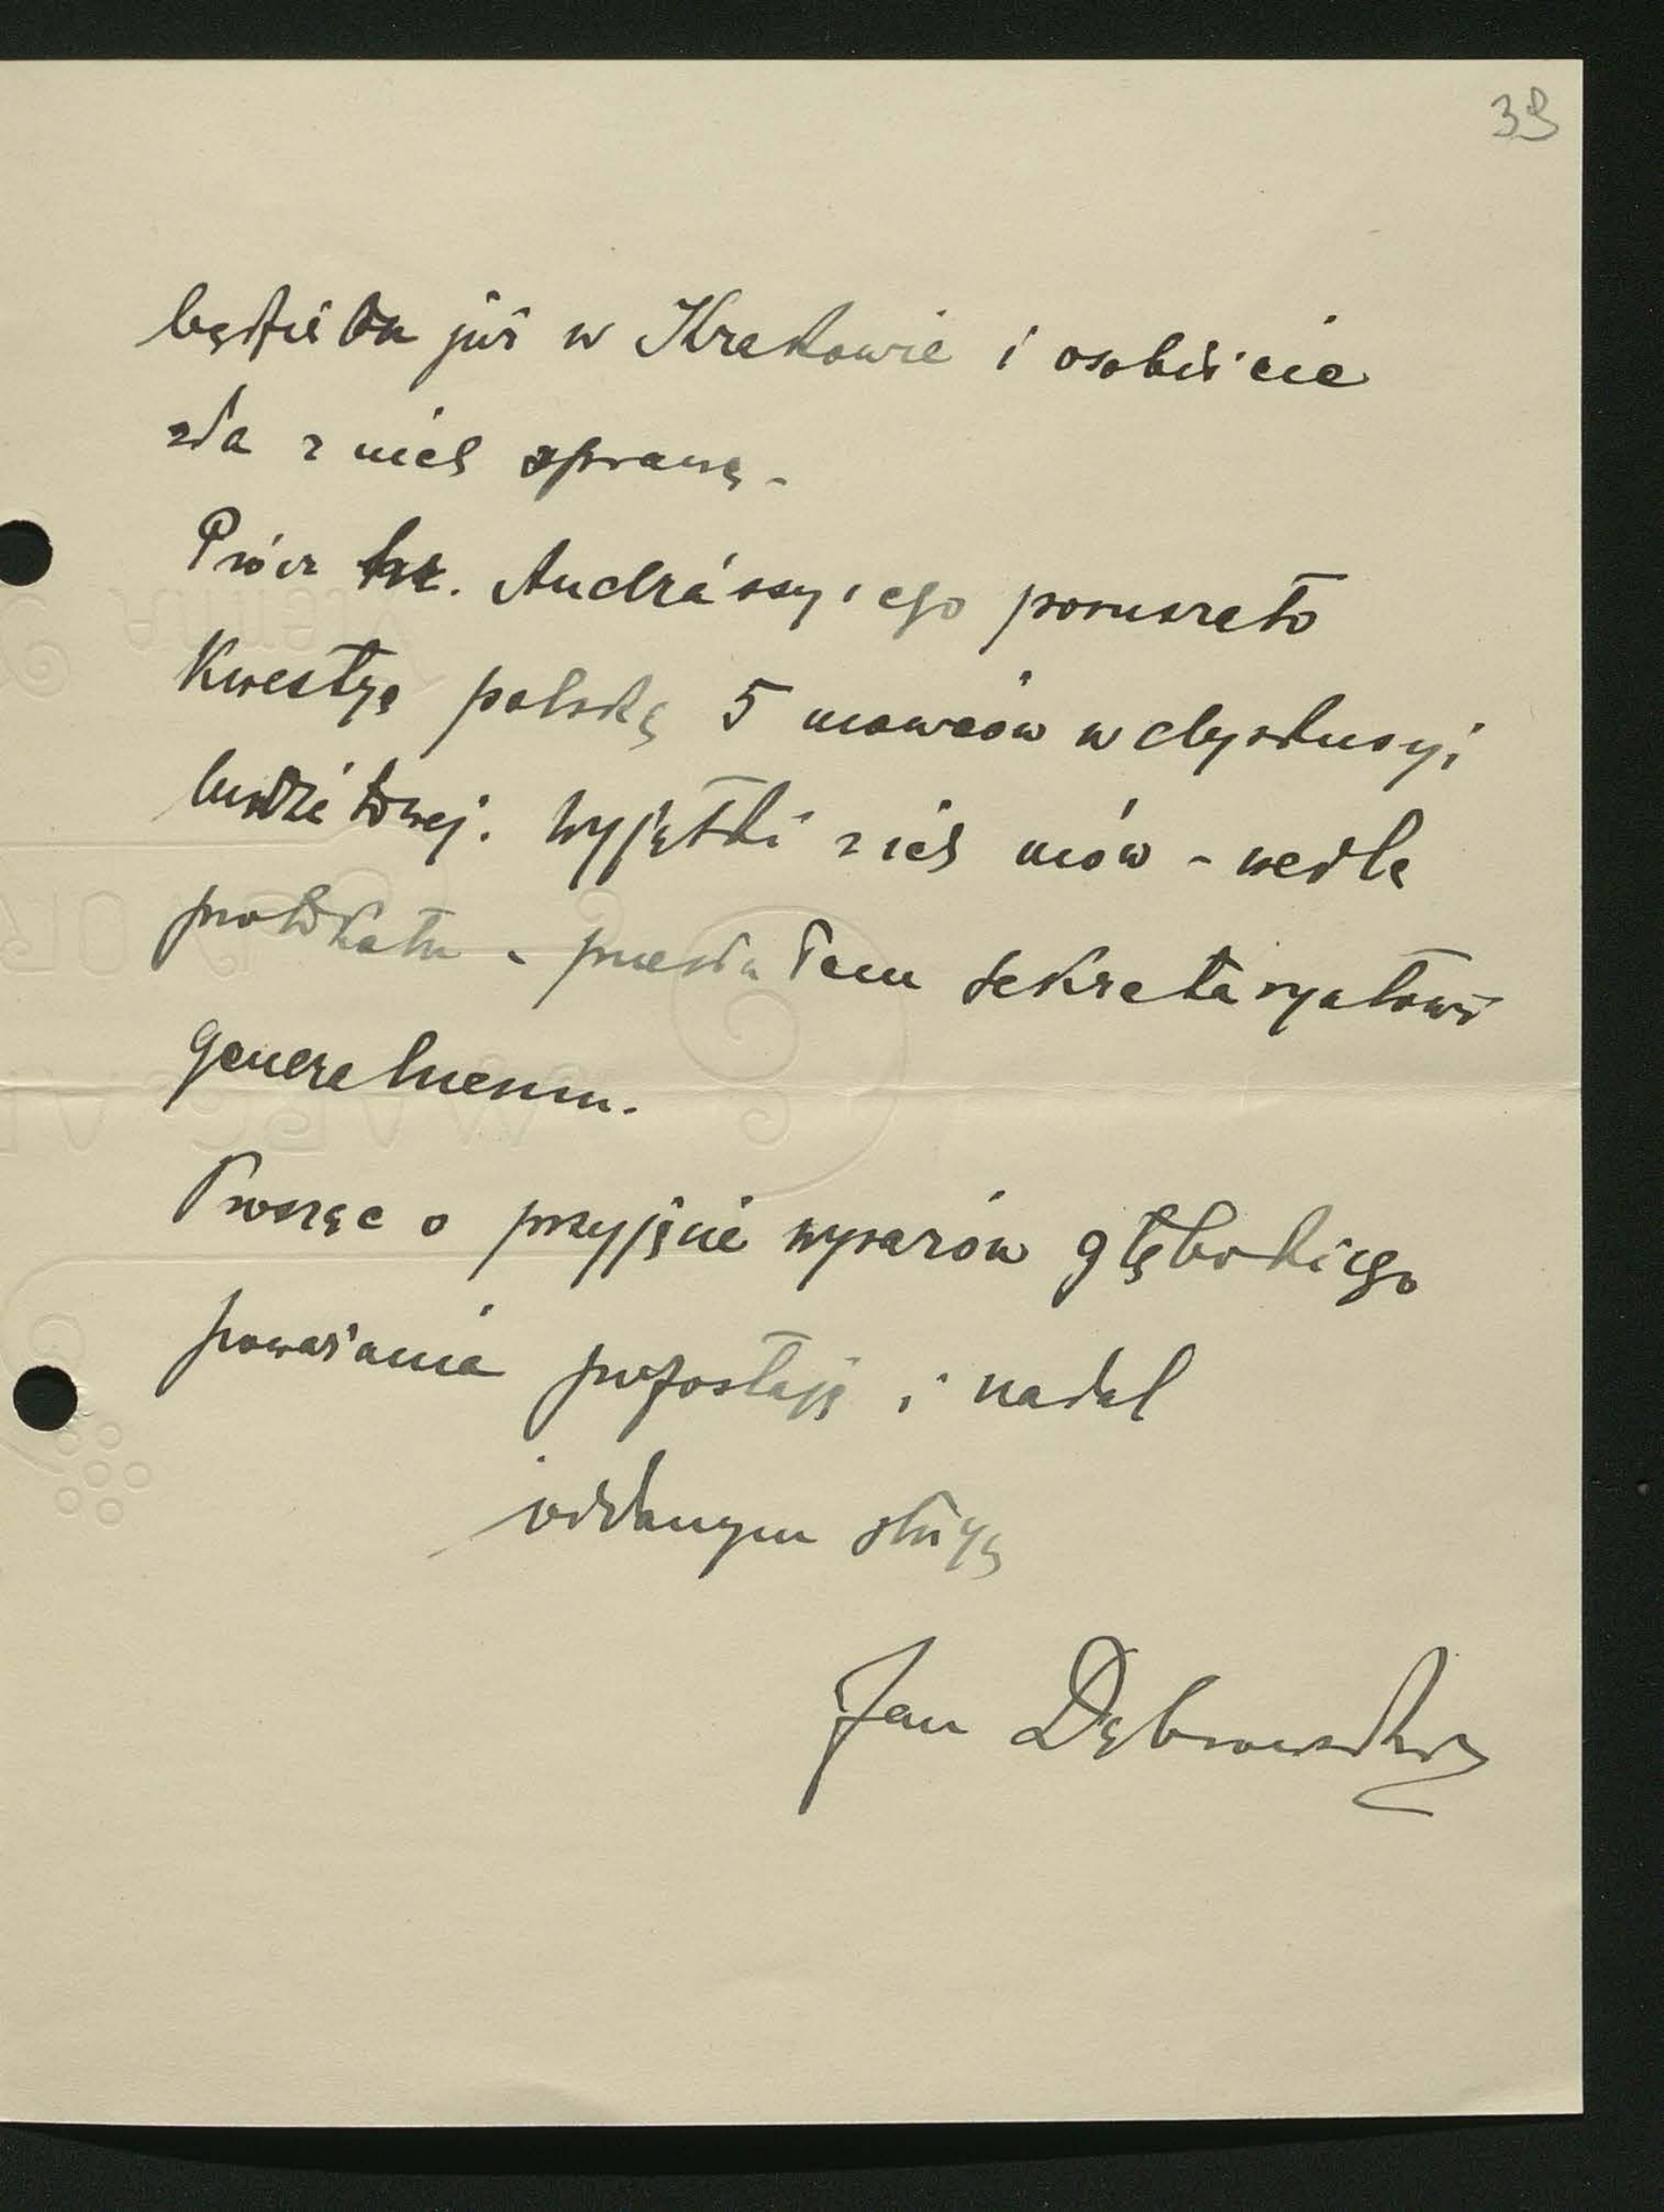 39
będzie on już w Krakowie i osobiście
zda z nich sprawę.
Prócz hr. Andrássy'ego poruszało
kwestyę polską 5 mówców w dyskusyi
budżetowej. Wyjątki z ich mów - wedle
protokołu - przesłałem Sekretaryatowi
Generalnemu.
Prosząc o przyjęcie wyrazów głębokiego
poważania pozostaję i nadal
oddanym sługą
Jan Dąbrowski